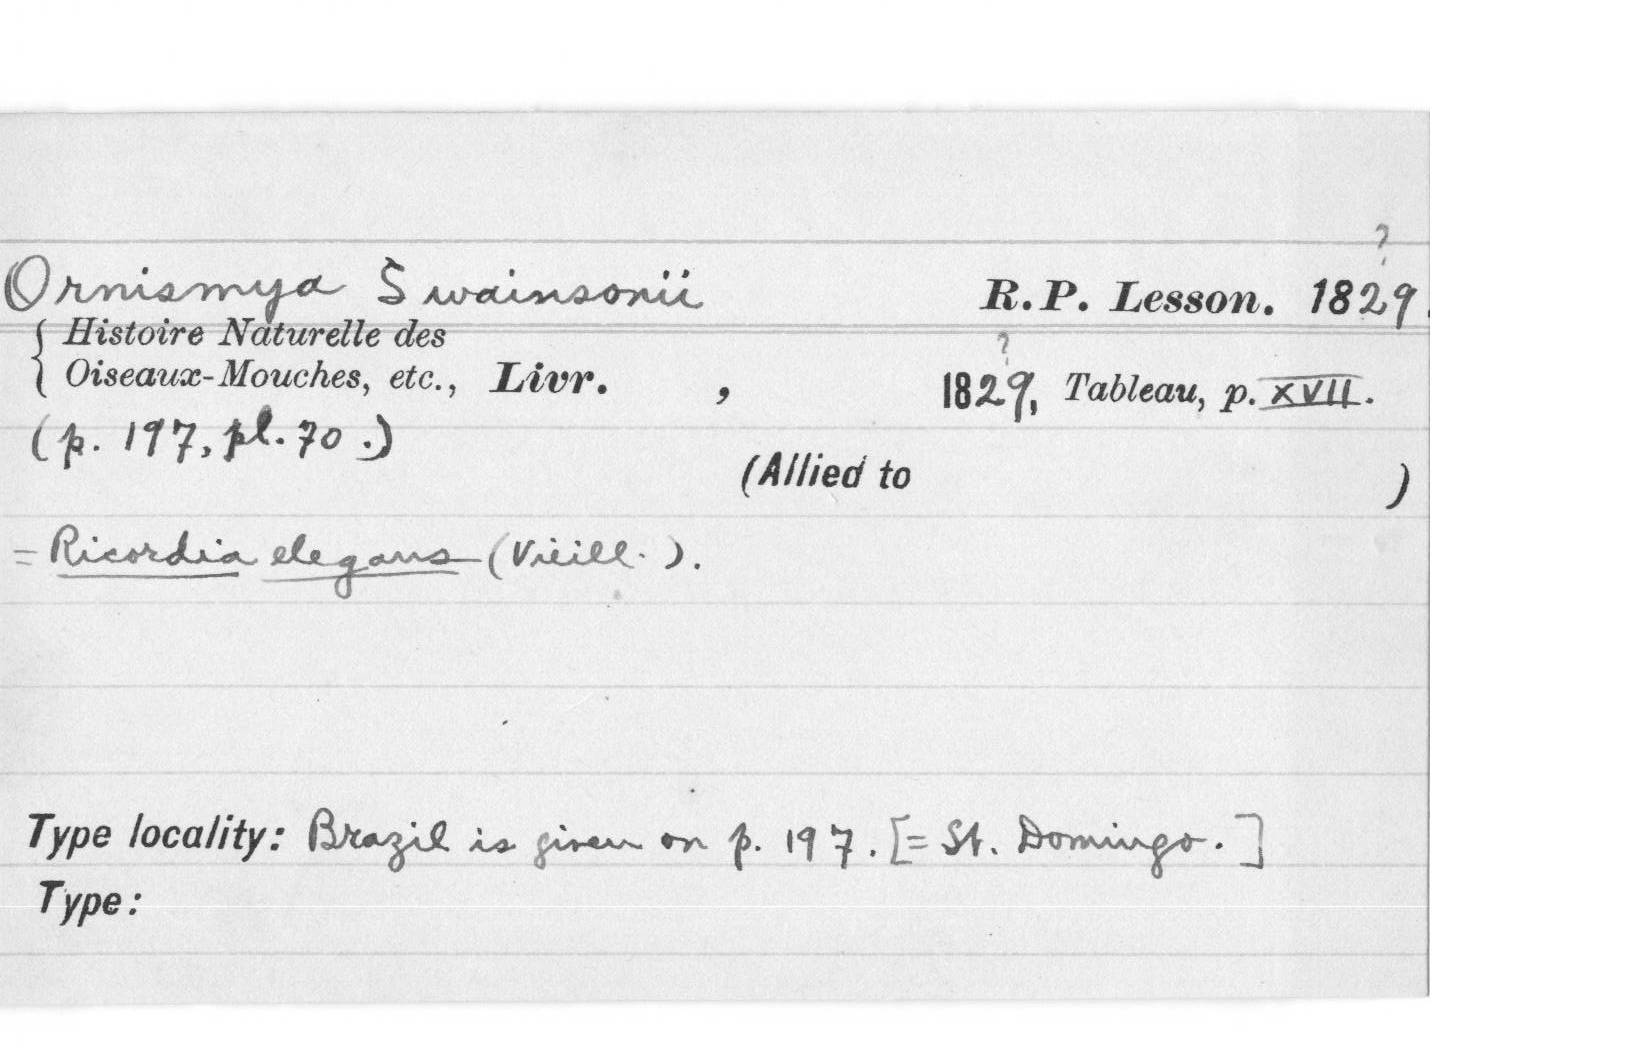 ?
Ornismya Swainsonii R.P. Lesson. 1829.
{ Histoire Naturelle des
Oiseaux-Mouches, etc., Livr. , 1829, Tableau, p. XVII.
?
(p. 197, pl. 70.)
(Allied to )
= Ricordia elegans (Vieill.).
Type locality: Brazil is given on p. 197. [= St. Domingo.]
Type: